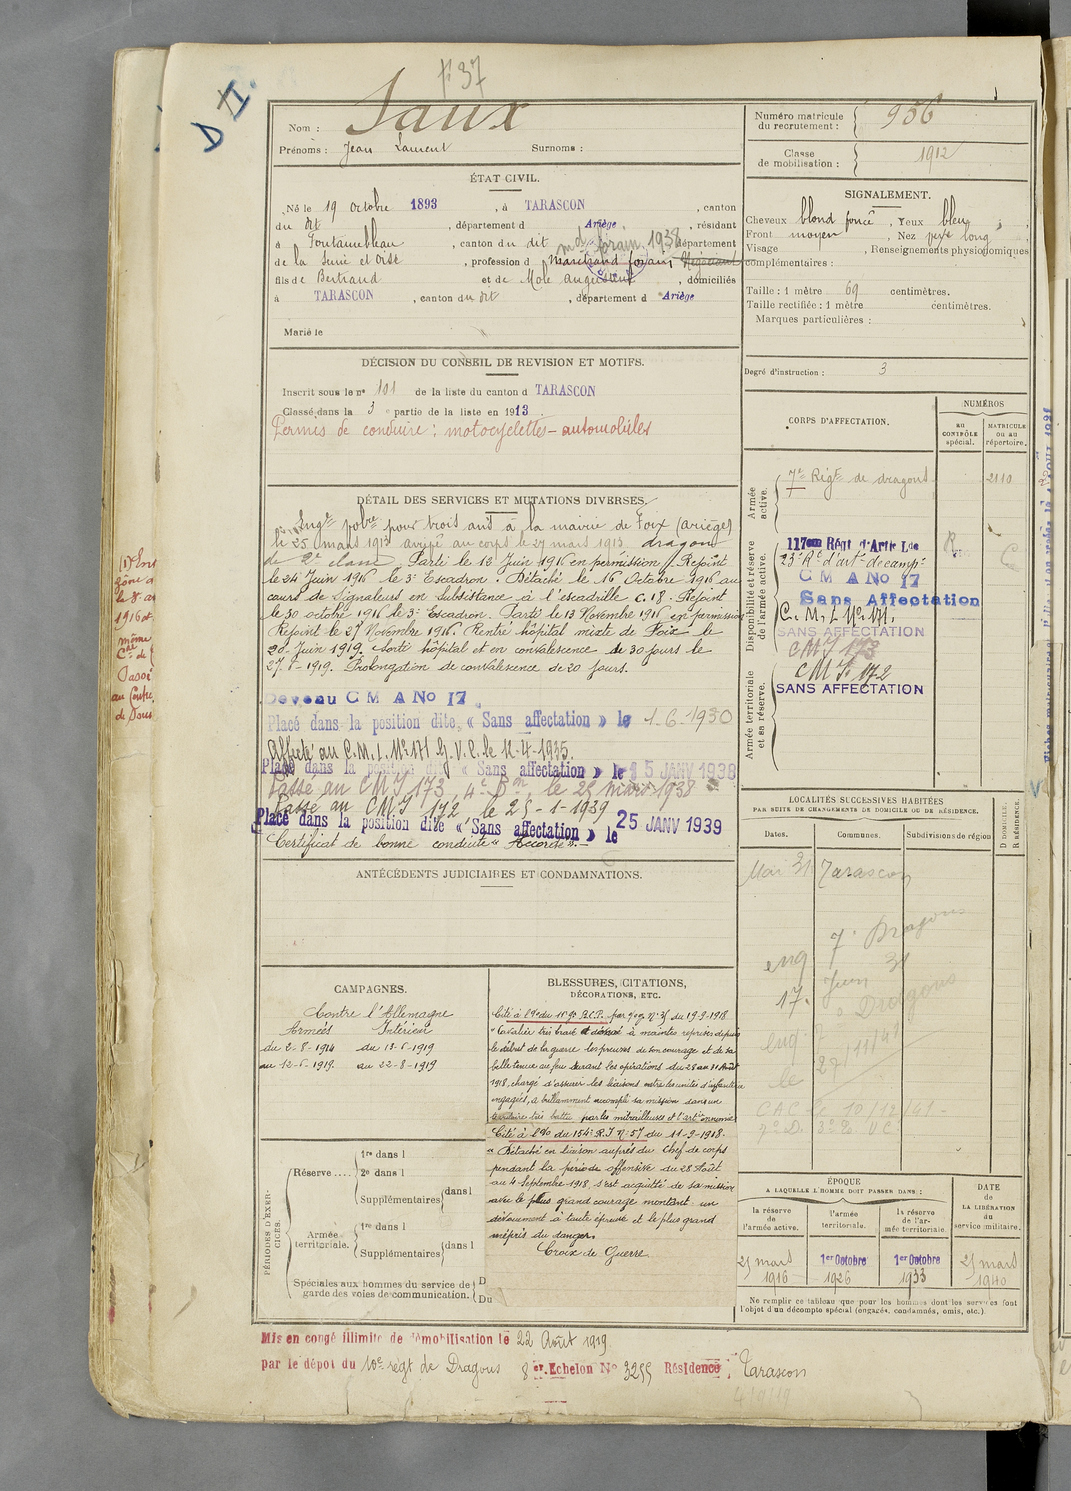 F 37
D II.
Nom : Saux
Prénoms : Jean Laurent Surnoms :
Numéro matricule du recrutement : 956
Classe de mobilisation : 1912
ÉTAT CIVIL.
Né le 19 octobre 1893, à TARASCON, canton
du dit, département d Ariège, résidant
à Fontainebleau, canton du dit, département
md forain 1938
de la Seine et Oise, profession d marchand forain
fils de Bertrand et de Mole augustine, domiciliés
à TARASCON, canton du dit, département d Ariège
Marié le
SIGNALEMENT.
Cheveux blond foncé, Yeux bleu ;
Front moyen, Nez long,
Visage , Renseignements physionomiques
complémentaires :
Taille : 1 mètre 69 centimètres.
Taille rectifiée : 1 mètre centimètres.
Marques particulières :
Degré d'instruction : 3
DÉCISION DU CONSEIL DE REVISION ET MOTIFS.
Inscrit sous le n° 101 de la liste du canton d TARASCON
Classé dans la 3e partie de la liste en 1913
Permis de conduire : motocyclettes - automobiles
DÉTAIL DES SERVICES ET MUTATIONS DIVERSES.
pour trois ans à la mairie de Foix (ariège)
le 25 mars 1913 arrivé au corps le 27 mars 1913 dragon
de 2e classe. Parti le 12 Juin 1916 en permission. Rejoint
le 24 Juin 1916 le 3e Escadron. Détaché le 16 Octobre 1916 au
cours de Signaleurs en Subsistance à l'escadrille C. 18. Rejoint
le 30 octobre 1916 le 3e Escadron. Parti le 13 Novembre 1916 en permission
Rejoint le 27 Novembre 1916. Rentré hôpital mixte de Foix le
20 Juin 1919. Sorti hôpital et en convalescence de 30 jours le
1919. Prolongation de convalescence de 20 jours.
Devenu C M A No 17
Placé dans la position dite « Sans affectation » le 1-6-1930
Affecté au C.M.I. N°171 G.V.C. le 12-4-1935.
Placé dans la position dite « Sans affectation » le 15 JANV 1938
Passé au CMI 173, le 25 mars 1938
Passé au CMI 172 le 25-1-1939
Placé dans la position dite « Sans affectation » le 25 JANV 1939
Certificat de bonne conduite « Accordé ».
ANTÉCÉDENTS JUDICIAIRES ET CONDAMNATIONS.
CORPS D'AFFECTATION.
NUMÉROS
AU CONTRÔLE spécial.
MATRICULE ou au répertoire.
Armée active.
7e Régt de dragons 2110
Disponibilité et réserve de l'armée active.
117eme Régt d'Artie Lde
23e Rt d'art de campe
C M A No 17
Sans Affectation
C. M. I. N° 171.
SANS AFFECTATION
CMI 173
Armée territoriale et sa réserve.
CMI. 172
SANS AFFECTATION
LOCALITÉS SUCCESSIVES HABITÉES
PAR SUITE DE CHANGEMENTS DE DOMICILE OU DE RÉSIDENCE.
Dates. Communes. Subdivisions de région
D DOMICILE. R RÉSIDENCE.
Mai 31 Tarascon
eng 7e Dragons
17. Juin 31
Dragons
eng
le 27/11/41
10/12/41
CAMPAGNES.
Contre l'Allemagne
Armées Intérieur
du 2-8-1914 du 13-6-1919
au 12-6-1919. au 22-8-1919
BLESSURES, CITATIONS,
DÉCORATIONS, ETC.
Cité à l'Ordre du B.C.P. du 19-9-1918
"Cavalier très brave a donné à maintes reprises depuis
le début de la guerre les preuves de son courage et de sa
belle tenue au feu durant les opérations du 28 au 31 Août
1918, chargé d'assurer les liaisons entre les unités d'infanterie
engagées, a brillamment accompli sa mission dans un
territoire très battu par les mitrailleuses et l'artie ennemie
Cité à l'Do du 154e R.I n° 57 du 11-9-1918.
"Détaché en liaison auprès du Chef de corps
pendant la période offensive du 28 Août
au 4 Septembre 1918, s'est acquitté de sa mission
avec le plus grand courage montrant un
dévouement à toute épreuve et le plus grand
mépris du danger.
Croix de Guerre
PÉRIODES D'EXERCICES.
Réserve....
1re dans l
2e dans l
Supplémentaires dans l
Armée territoriale.
1re dans l
Supplémentaires dans l
Spéciales aux hommes du service de garde des voies de communication. D
Du
ÉPOQUE
A LAQUELLE L'HOMME DOIT PASSER DANS :
la réserve de l'armée active.
l'armée territoriale.
la réserve de l'armée territoriale.
DATE DE LA LIBÉRATION du service militaire.
25 mars 1916
1er Octobre 1926
1er Octobre 1933
25 mars 1940
Ne remplir ce tableau que pour les hommes dont les services font
l'objet d'un décompte spécial (engagés, condamnés, omis, etc.)
Mis en congé illimité de démobilisation le 22 Août 1919
par le dépôt du 10e régt de Dragons 8er. Echelon N° 3255 Résidence, Tarascon